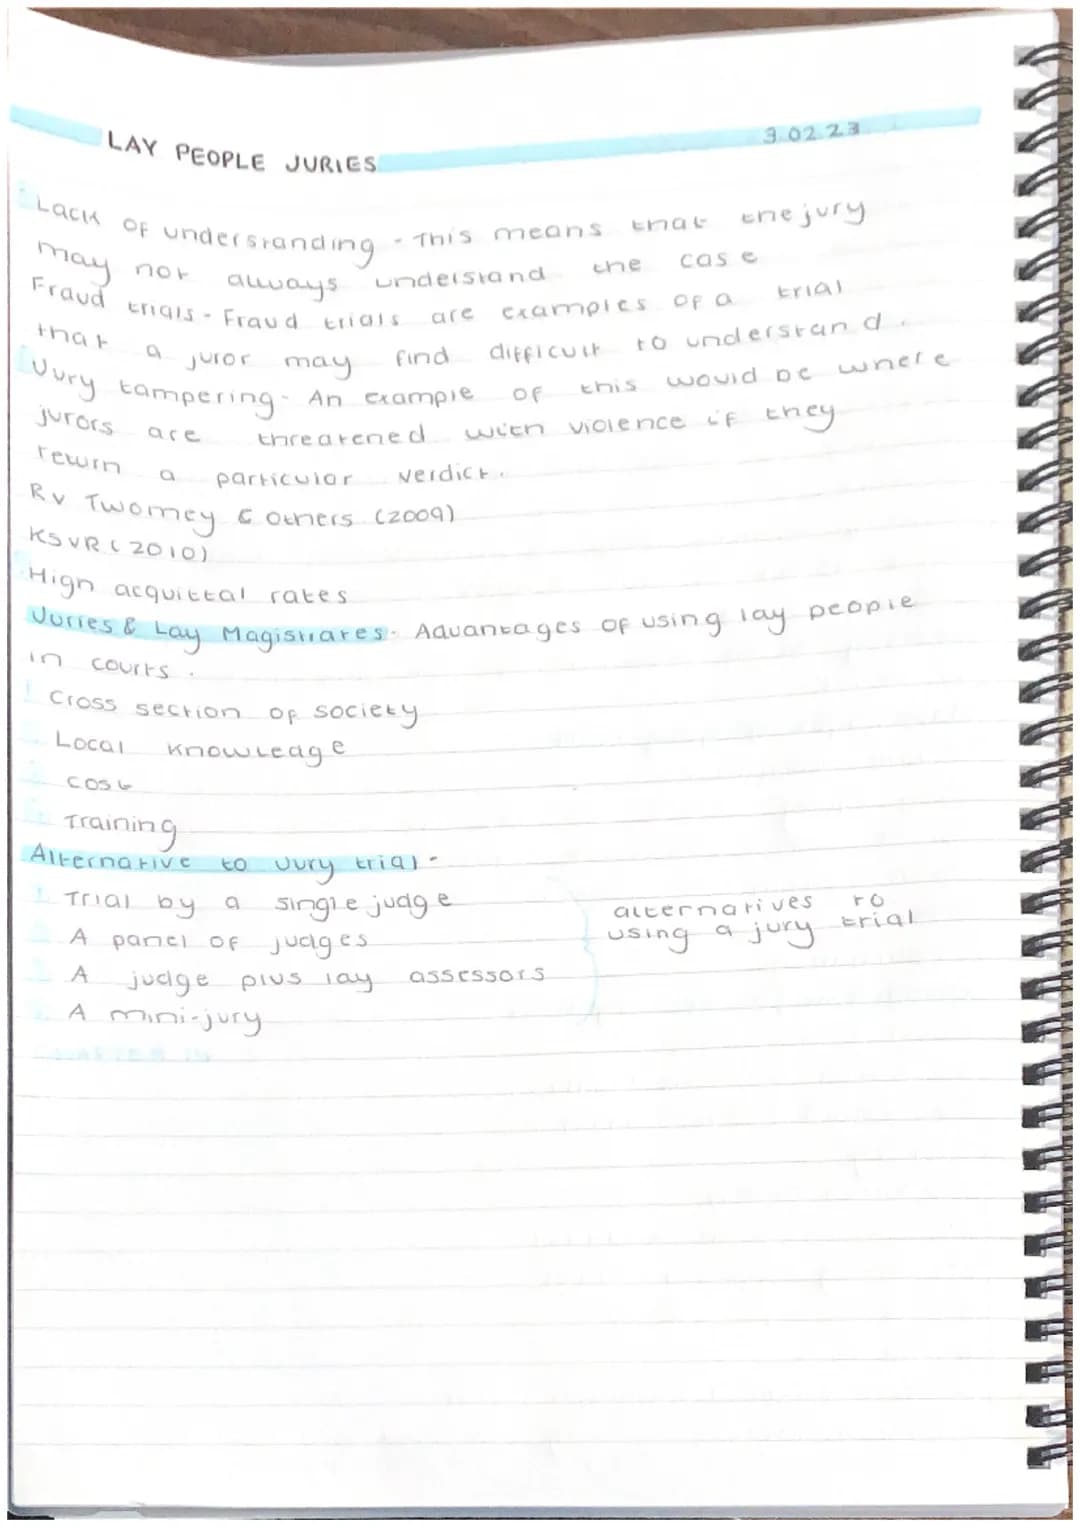 LAY PEOPLE JURIES
3.02.23
Lack of understanding - This means that the jury
may not always understand the case
Fraud trials - Fraud trials are examples of a trial
that a juror may find difficult to understand.
Jury tampering - An example of this would be where
jurors are threatened with violence if they
return a particular verdict.
R v Twomey & Others (2009)
KS v R (2010)
High acquittal rates
Juries & Lay Magistrates - Advantages of using lay people
in courts.
Cross section of society
Local knowledge
Cost
Training
Alternative to Jury trial -
Trial by a single judge
A panel of judges
A judge plus lay assessors
A mini-jury
alternatives to
using a jury trial